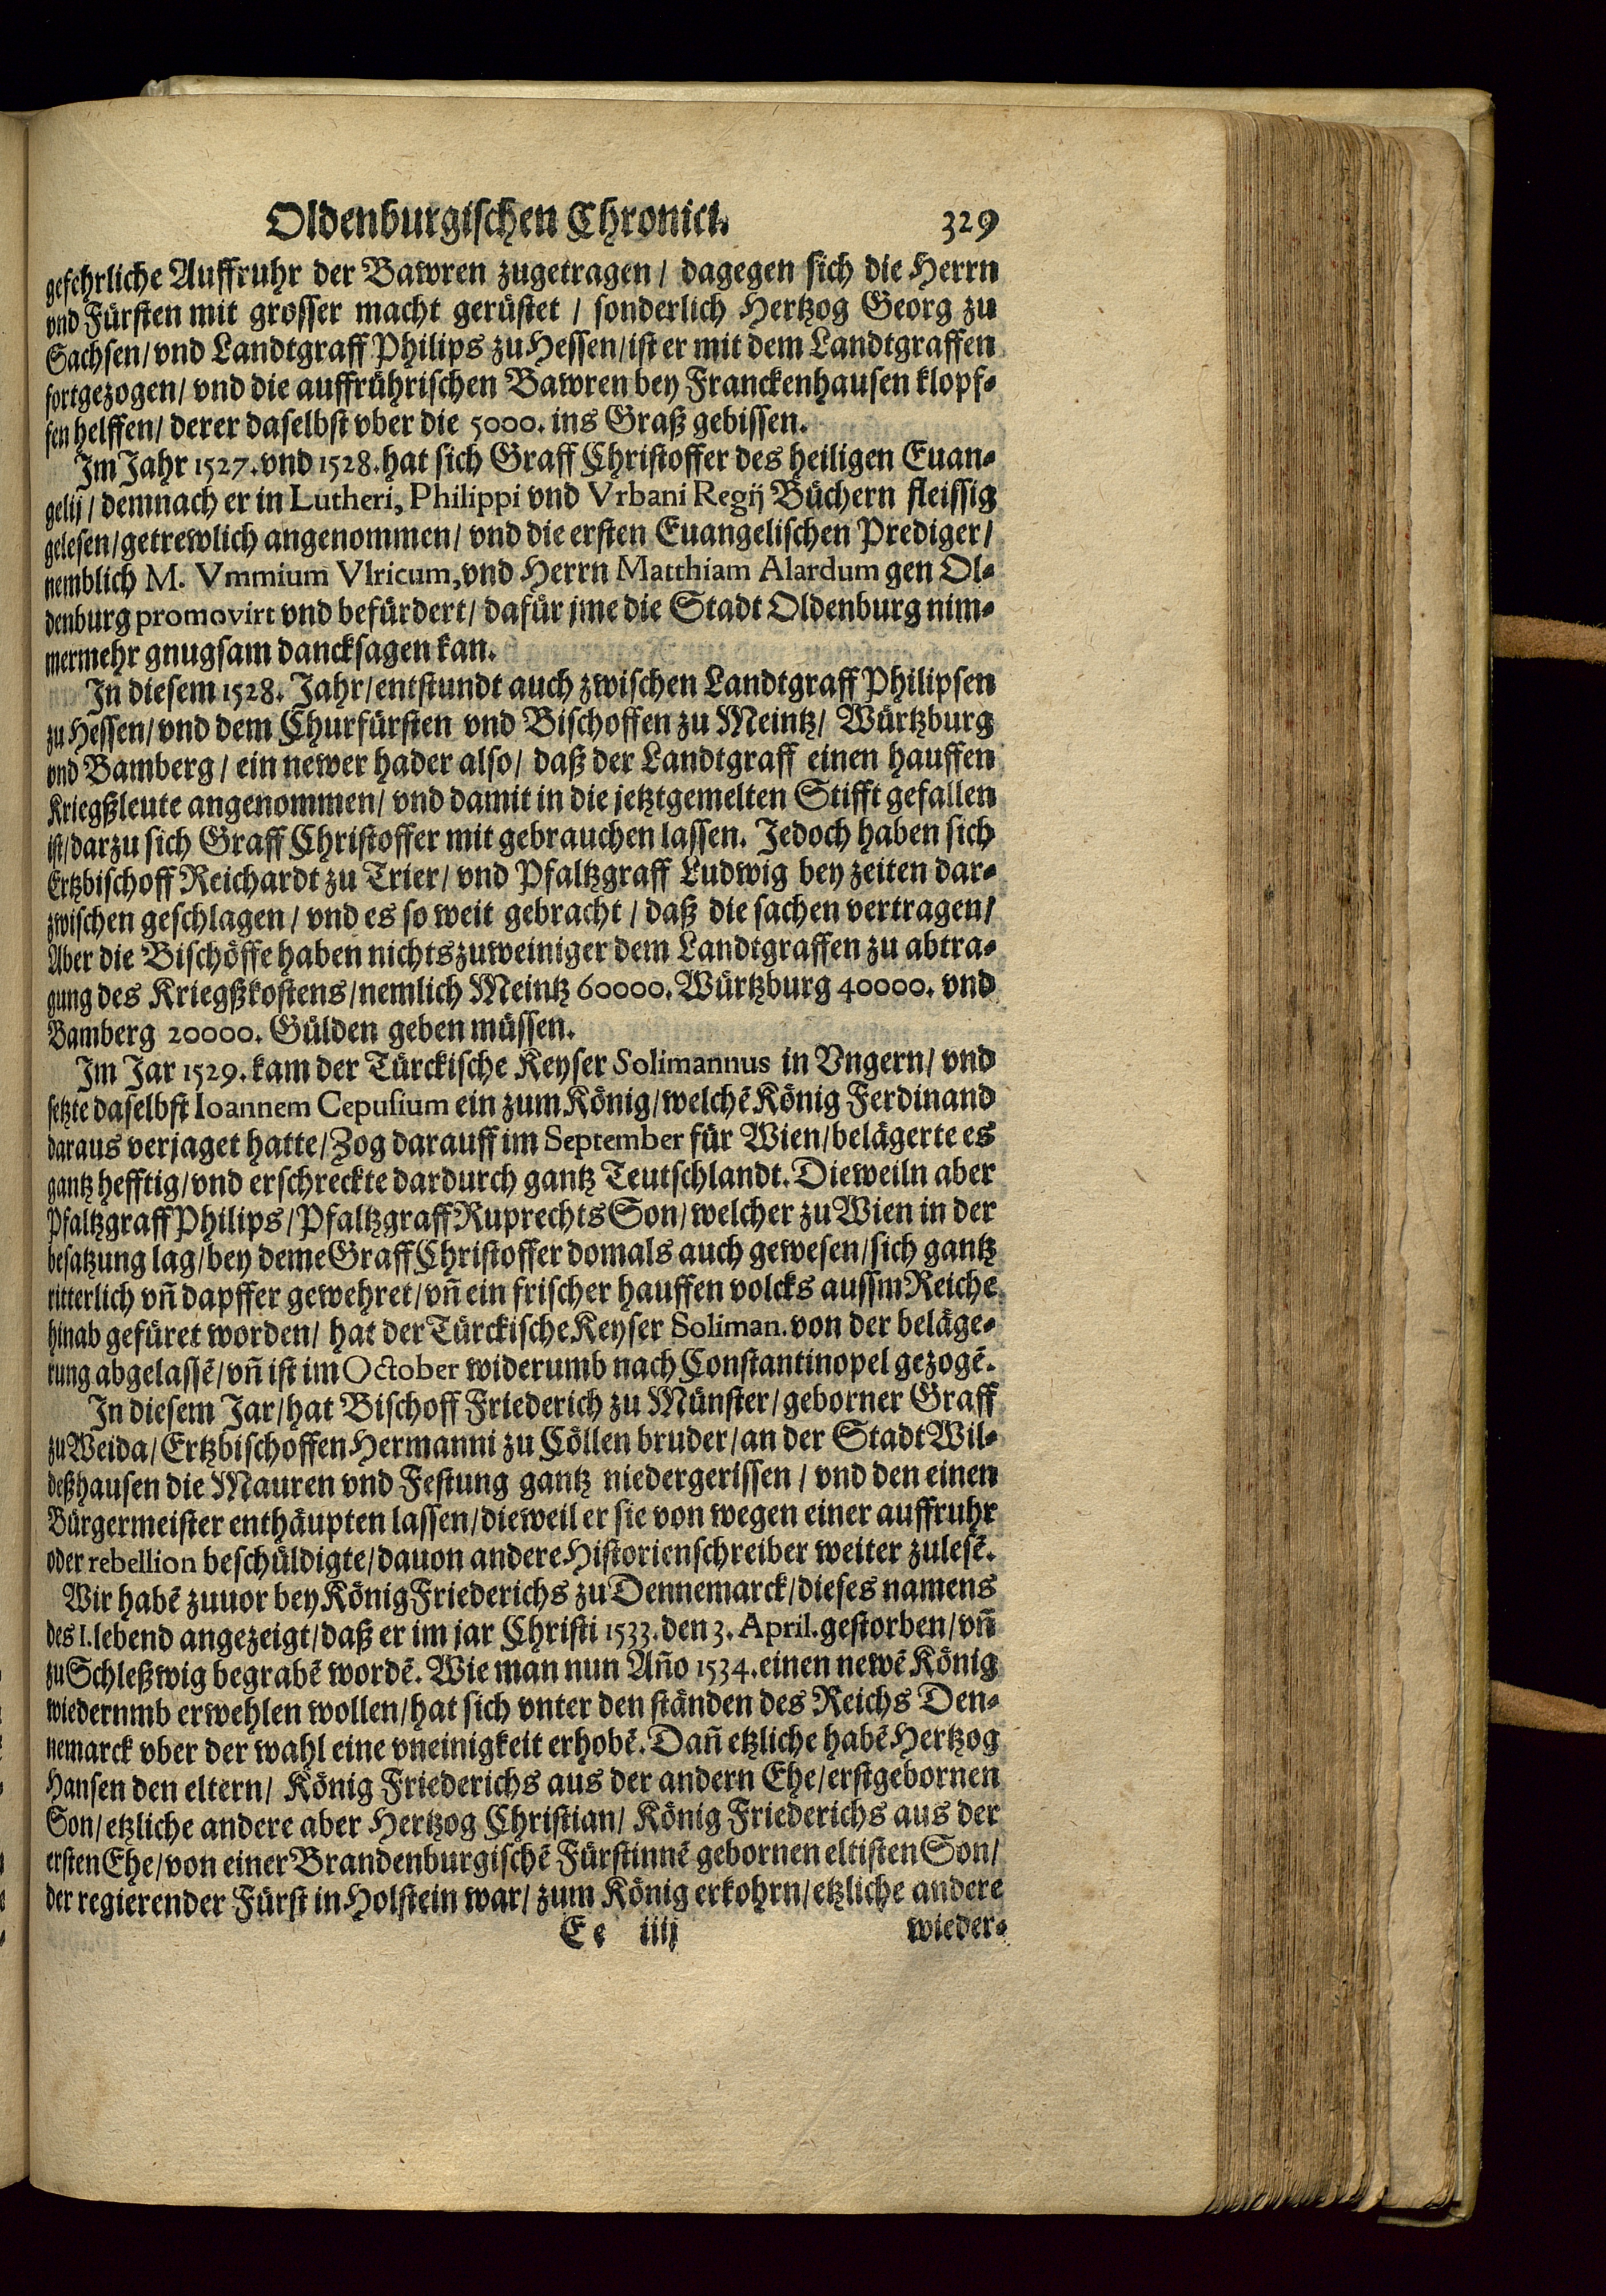 Oldenburgischen Chronici. 329
gefehrliche Auffruhr der Bawren zugetragen / dagegen sich die Herrn
vnd Fürsten mit grosser macht gerüstet / sonderlich Hertzog Georg zu
Sachsen / vnd Landtgraff Philips zu Hessen / ist er mit dem Landtgraffen
fortgezogen / vnd die auffrührischen Bawren bey Franckenhausen klopf-
fen helffen / derer daselbst vber die 5000. ins Graß gebissen.
Im Jahr 1527. vnd 1528. hat sich Graff Christoffer des heiligen Euan-
gelij / demnach er in Lutheri, Philippi vnd Vrbani Regij Büchern fleissig
gelesen / getrewlich angenommen / vnd die ersten Euangelischen Prediger /
nemblich M. Vmmium Vlricum, vnd Herrn Matthiam Alardum gen Ol-
denburg promovirt vnd befürdert / dafür jme die Stadt Oldenburg nim-
mermehr gnugsam dancksagen kan.
In diesem 1528. Jahr / entstundt auch zwischen Landtgraff Philipsen
zu Hessen / vnd dem Churfürsten vnd Bischoffen zu Meintz / Würtzburg
vnd Bamberg / ein newer hader also / daß der Landtgraff einen hauffen
Kriegßleute angenommen / vnd damit in die jetztgemelten Stifft gefallen
ist / darzu sich Graff Christoffer mit gebrauchen lassen. Jedoch haben sich
Ertzbischoff Reichardt zu Trier / vnd Pfaltzgraff Ludwig bey zeiten dar-
zwischen geschlagen / vnd es so weit gebracht / daß die sachen vertragen /
Aber die Bischöffe haben nichtszuweiniger dem Landtgraffen zu abtra-
gung des Kriegßkostens / nemlich Meintz 60000. Würtzburg 40000. vnd
Bamberg 20000. Gülden geben müssen.
Im Jar 1529. kam der Türckische Keyser Solimannus in Vngern / vnd
setzte daselbst Ioannem Cepusium ein zum König / welchē König Ferdinand
daraus verjaget hatte / Zog darauff im September für Wien / belägerte es
gantz hefftig / vnd erschreckte dardurch gantz Teutschlandt. Dieweiln aber
Pfaltzgraff Philips / Pfaltzgraff Ruprechts Son / welcher zu Wien in der
besatzung lag / bey deme Graff Christoffer domals auch gewesen / sich gantz
ritterlich vñ dapffer gewehret / vñ ein frischer hauffen volcks aussm Reiche
hinab gefüret worden / hat der Türckische Keyser Soliman. von der beläge-
rung abgelassē / vñ ist im October widerumb nach Constantinopel gezogē.
In diesem Jar / hat Bischoff Friederich zu Münster / geborner Graff
zu Weida / Ertzbischoffen Hermanni zu Cöllen bruder / an der Stadt Wil-
deßhausen die Mauren vnd Festung gantz niedergerissen / vnd den einen
Bürgermeister enthäupten lassen / dieweil er sie von wegen einer auffruhr
oder rebellion beschüldigte / dauon andere Historienschreiber weiter zulesē.
Wir habē zuuor bey König Friederichs zu Dennemarck / dieses namens
des I. lebend angezeigt / daß er im jar Christi 1533. den 3. April. gestorben / vñ
zu Schleßwig begrabē wordē. Wie man nun Año 1534. einen newē König
wiedernmb erwehlen wollen / hat sich vnter den ständen des Reichs Den-
nemarck vber der wahl eine vneinigkeit erhobē. Dañ etzliche habē Hertzog
Hansen den eltern / König Friederichs aus der andern Ehe / erstgebornen
Son / etzliche andere aber Hertzog Christian / König Friederichs aus der
ersten Ehe / von einer Brandenburgischē Fürstinnē gebornen eltisten Son /
der regierender Fürst in Holstein war / zum König erkohrn / etzliche andere
Ee iiij wieder-